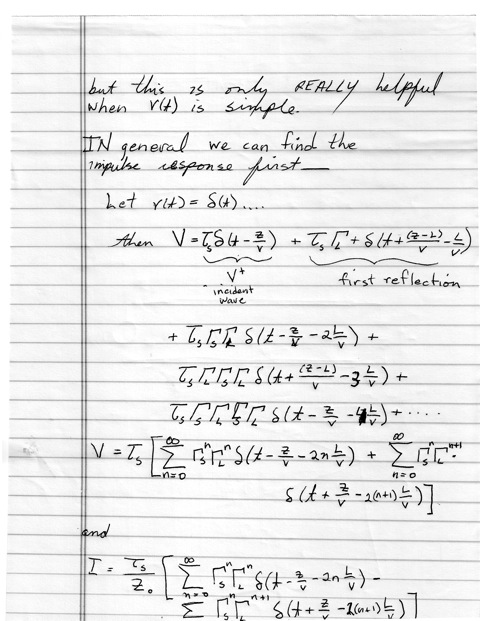 but this is only REALLY helpful
when v(t) is simple.
IN general we can find the
impulse response first—
Let v(t) = δ(t)....
then V = τ_s δ(t - z/v) + τ_s Γ_L + δ(t + (z-L)/v - L/v)
V⁺ incident wave
first reflection
+ τ_s Γ_s Γ_L δ(t - z/v - 2L/v) +
τ_s Γ_L Γ_s Γ_L δ(t + (z-L)/v - 3L/v) +
τ_s Γ_s Γ_L Γ_s Γ_L δ(t - z/v - 4L/v) + ....
V = τ_s [ ∑_{n=0}^{∞} Γ_s^n Γ_L^n δ(t - z/v - 2n L/v) + ∑_{n=0}^{∞} Γ_s^n Γ_L^{n+1} ·
δ(t + z/v - 2(n+1) L/v) ]
and
I = τ_s/Z_0 [ ∑_{n=0}^{∞} Γ_s^n Γ_L^n δ(t - z/v - 2n L/v) -
∑ Γ_s^n Γ_L^{n+1} δ(t + z/v - 2(n+1) L/v) ]